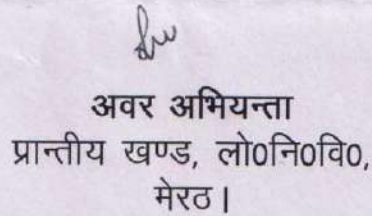 अवर अभियन्ता
प्रान्तीय खण्ड, लो०नि०वि०,
मेरठ।